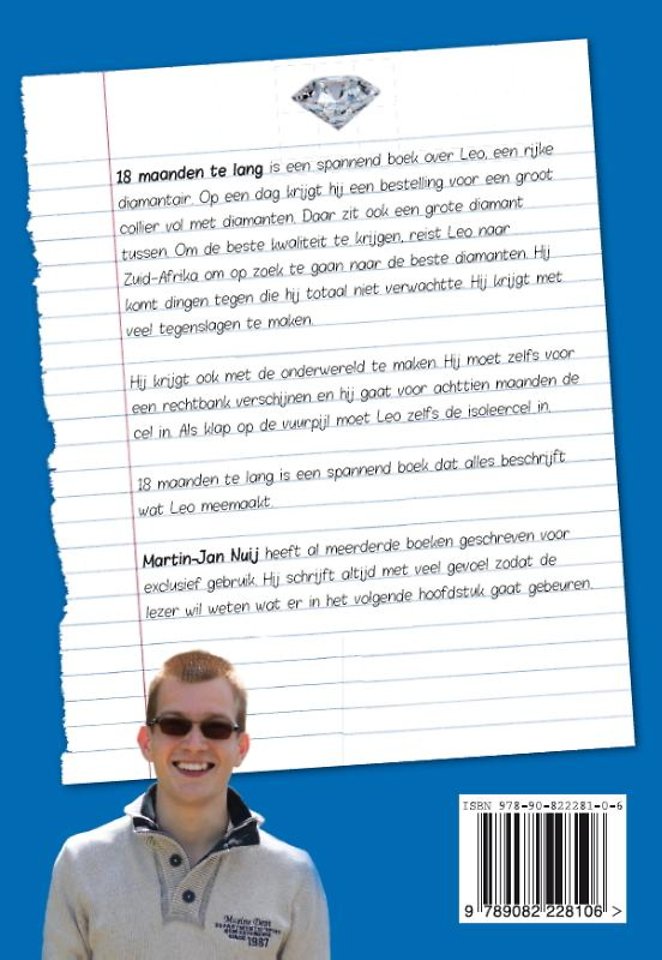 18 maanden te lang is een spannend boek over Leo, een rijke
diamantair. Op een dag krijgt hij een bestelling voor een groot
collier vol met diamanten. Daar zit ook een grote diamant
tussen. Om de beste kwaliteit te krijgen, reist Leo naar
Zuid-Afrika om op zoek te gaan naar de beste diamanten. Hij
komt dingen tegen die hij totaal niet verwachtte. Hij krijgt met
veel tegenslagen te maken.
Hij krijgt ook met de onderwereld te maken. Hij moet zelfs voor
een rechtbank verschijnen en hij gaat voor achttien maanden de
cel in. Als klap op de vuurpijl moet Leo zelfs de isoleercel in.
18 maanden te lang is een spannend boek dat alles beschrijft
wat Leo meemaakt.
Martin-Jan Nuij heeft al meerderde boeken geschreven voor
exclusief gebruik. Hij schrijft altijd met veel gevoel zodat de
lezer wil weten wat er in het volgende hoofdstuk gaat gebeuren.
ISBN 978-90-822281-0-6
9 789082 228106 >
SINCE 1987